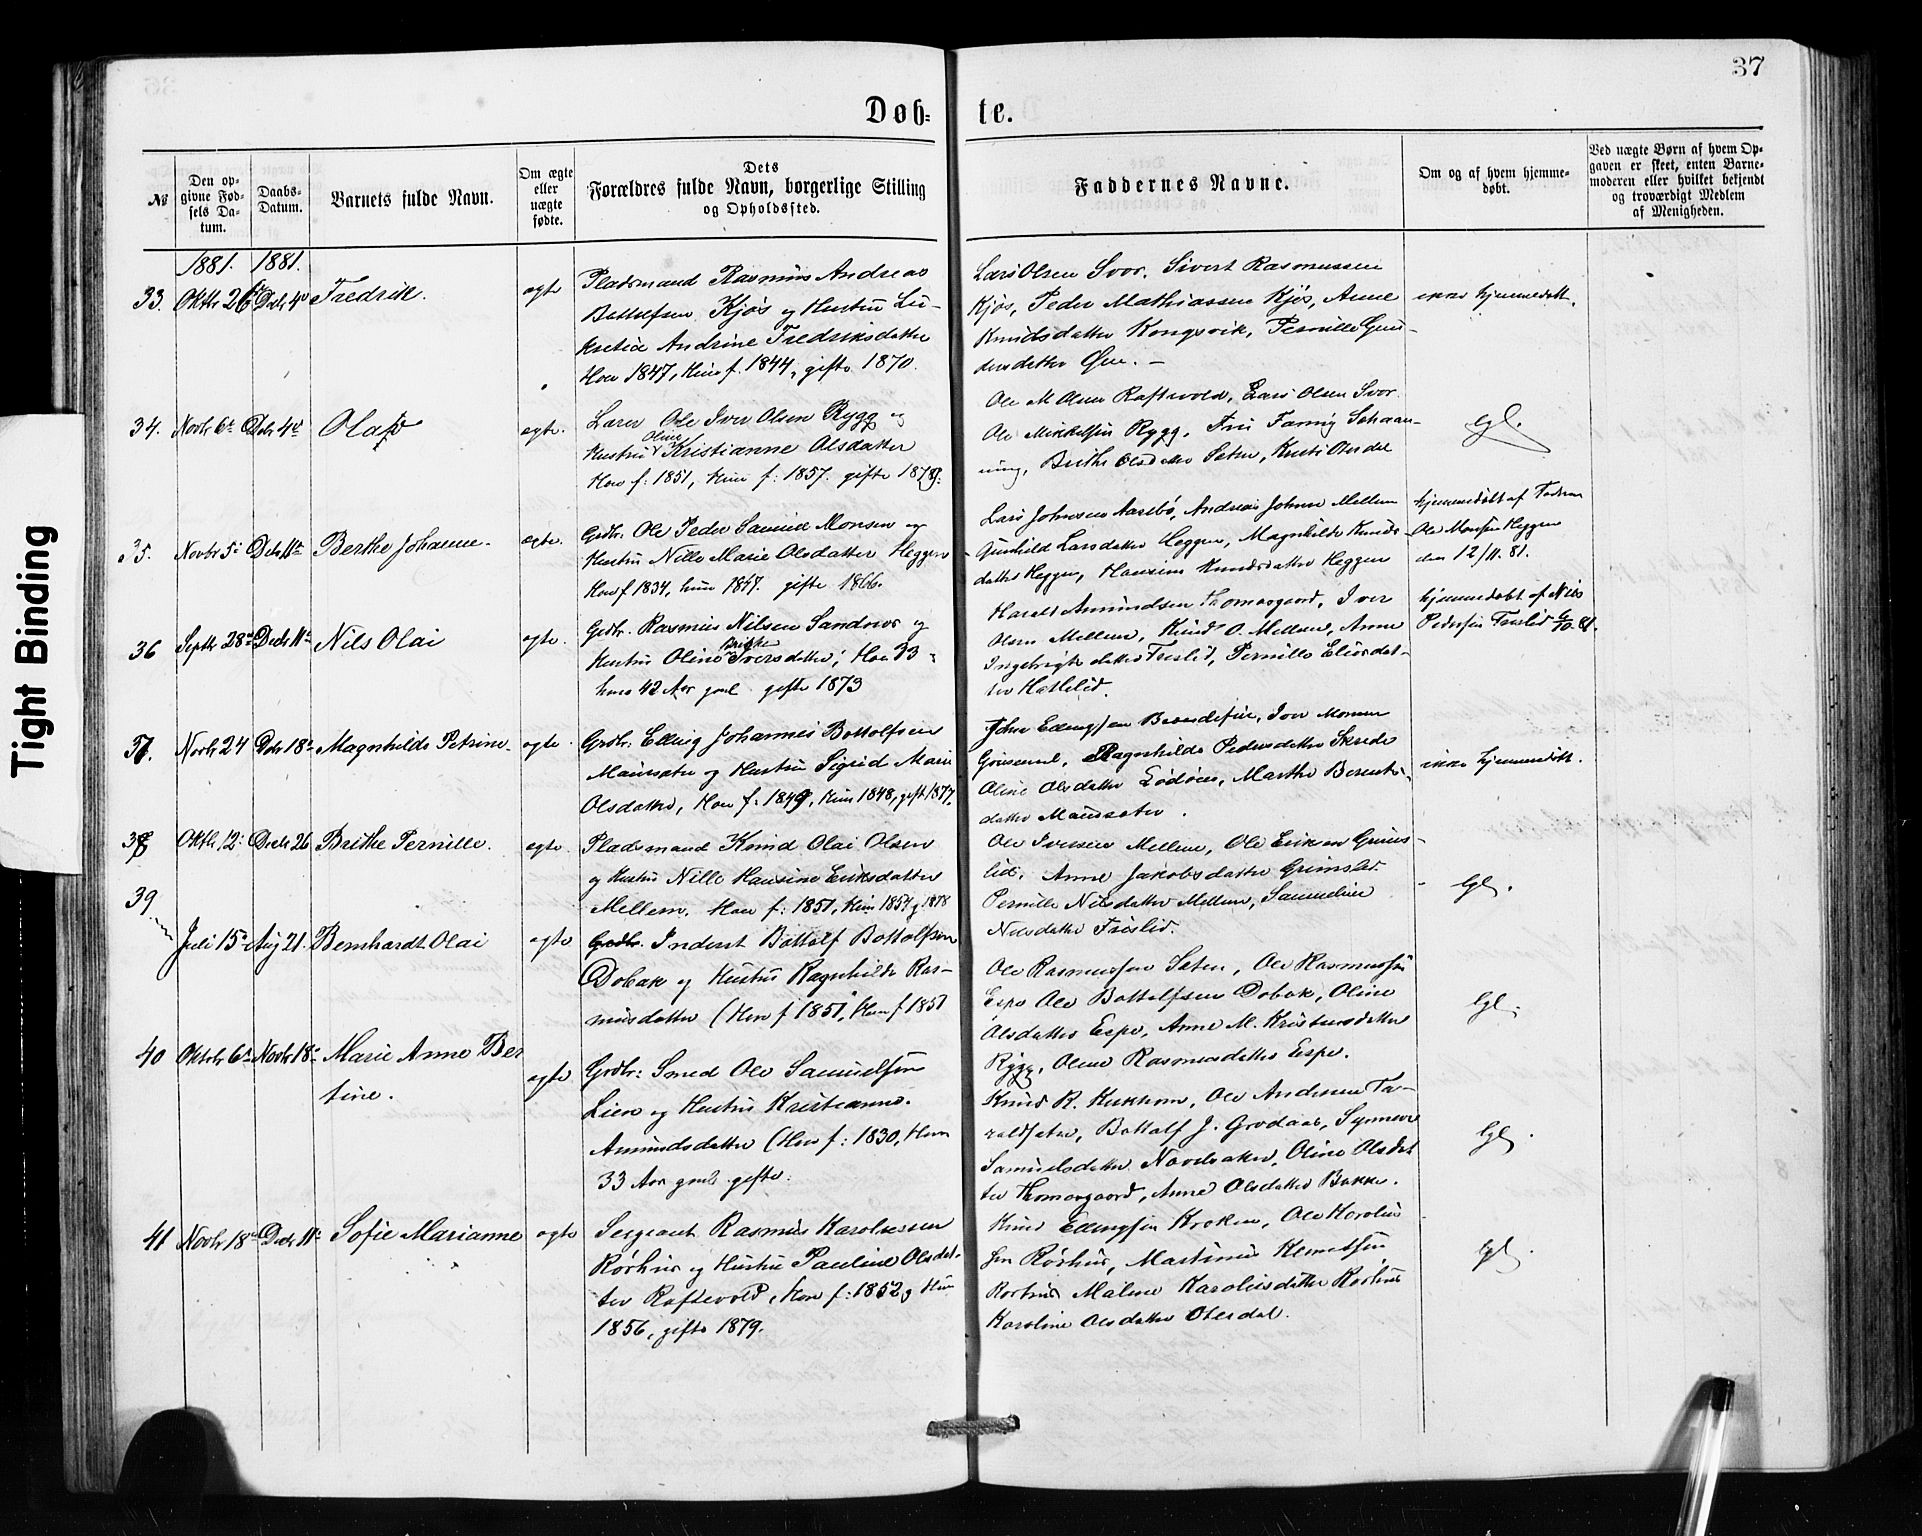 37
Døb=
te.
Tight Binding
№
Den op-
givne Fød-
sels Da-
tum.
Daabs-
Datum.
Barnets fulde Navn.
Om ægte
eller
uægte
fødte.
Dets
Forældres fulde Navn, borgerlige Stilling
og Opholdssted.
Faddernes Navne.
Om og af hvem hjemme-
døbt.
Ved uægte Børn af hvem Op-
gaven er skeet, enten Barne-
moderen eller hvilket bekjendt
og troværdigt Medlem
af Menigheden.
1881. 1881.
33. Oktbr 26 Decbr 4de Fredrik. ægte
Pladsmand Rasmus Andreas
Bottolfsen Kjøs og Hustru Lu-
kretia Andrine Fredriksdatter
Han 1847, Hun f. 1844, gifte 1870.
Lars Olsen Svor. Sivert Rasmussen
Kjøs, Peder Mathiassen Kjøs, Anne
Knudsdatter Kongsvik, Pernille Gun-
dersdatter Øen. –
ikke hjemmedøbt.
34. Novbr 6te Decbr 4de Olaf ægte.
Lærer Ole Iver Olsen Rygg og
Hustru Oline Kristianne Olsdatter
Han f: 1851, Hun f: 1857. gifte 1879.
Ole M Olsen Raftevold, Lars Olsen Svor
Ole Mikkelsen Rygg, Frk Fanny Schaan-
ning, Brithe Olsdatter Sæter,
lgl.
35. Novbr 5te Decbr 11te Berthe Johanne. ægte.
Grdbr. Ole Peder Samuel Monsen og
Hustru Nille Marie Olsdatter Heggen
Han f 1834, hun 1847. gifte 1866.
Lars Johnsen Aarebø, Andreas Johnsen Mellem
Gunhild Larsdatter Heggen, Magnhilde Knuds-
datter Heggen, Hansine Knudsdatter Heggen
hjemmedøbt af Faderen
Ole Monsen Heggen
den 12/11. 81.
36 Septbr 28de Decbr 11te Nils Olai ægte.
Grdbr. Rasmus Nilsen Sandnes og
Hustru Oline Brithe Iversdatter; Han 33
hun 42 Aar gml. gifte 1873
Harald Amundsen Thomasgaard, Iver
Olsen Mellem, Knud O. Mellem, Anne
Ingebrigtsdatter Frislid, Pernille Eliasdat-
ter Hatlelid.
hjemmedøbt af Nils
Pedersen Frislid 6/10. 81.
37. Novbr 24 Decbr 18de Magnhilde Petrine. ægte.
Grdbr. Elling Johannes Bottolfsen
Maursæter og Hustru Sigrid Marie
Olsdatter, Han f: 1849, Hun 1848, gift 1877.
John Ellingsen Iver Monsen
Ragnhilde Pedersdatter Skrede
Oline Olsdatter Lødøen, Marthe Berents-
datter Maursæter.
ikke hjemmedøbt.
38 Oktbr 12te Decbr 26 Brithe Pernille. ægte.
Pladsmand Knud Olai Olsen
og Hustru Nille Hansine Eriksdatter
Mellem. Han f: 1851, Hun 1854 g. 1878
Ole Iversen Mellem, Ole Eriksen Grims-
lid, Anne Jakobsdatter Grimslid.
Pernille Nilsdatter Mellem, Samueline
Nilsdatter Frislid.
lgl.
39
Juli 15de Aug 21. Bernhardt Olai ægte
Grdbr. Inderst Bottolf Bottolfsen
Dobak og Hustru Ragnhilde Ras-
musdatter (Han f 1851, Hun f 1851
Ole Rasmussen Sæter, Ole Rasmussen
Espe Ole Bottolfsen Dobak, Oline
Olsdatter Espe, Anne M. Kristensdatter
Rygg, Oline Rasmusdatter Espe.
lgl.
40 Oktbr 6te Novbr 18de Marie Anne Ber
tine. ægte
Grdbr: Smed Ole Samuelsen
Lien og Hustru Kristianne.
Amundsdatter (Han f: 1830, Hun
33 Aar gml. gifte.
Knud R. Ole Andersen Ta-
raldsæter, Bottolf J. Grodaas, Synneve
Samuelsdatter Navelsaker, Oline Olsdat
ter Thomasgaard, Anne Olsdatter Bakke.
lgl.
41 Novbr 18de Decbr 11te Sofie Marianne ægte
Sergeant Rasmus Karolussen
Rørhus og Hustru Pauline Olsdat-
ter Raftevold, Han f: 1852, Hun
1856, gifte 1879.
Knud Ellingsen Kroken, Ole Karolus
sen Rørhus, Martinus Klemetsen
Rørhus Malene Karolusdatter Rørhus
Karoline Olsdatter Otterdal.
lgl.